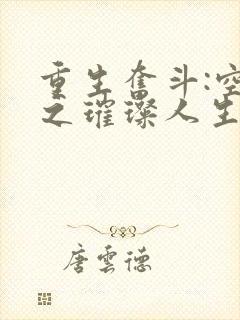 重生奋斗:空
之璀璨人生
唐雲德